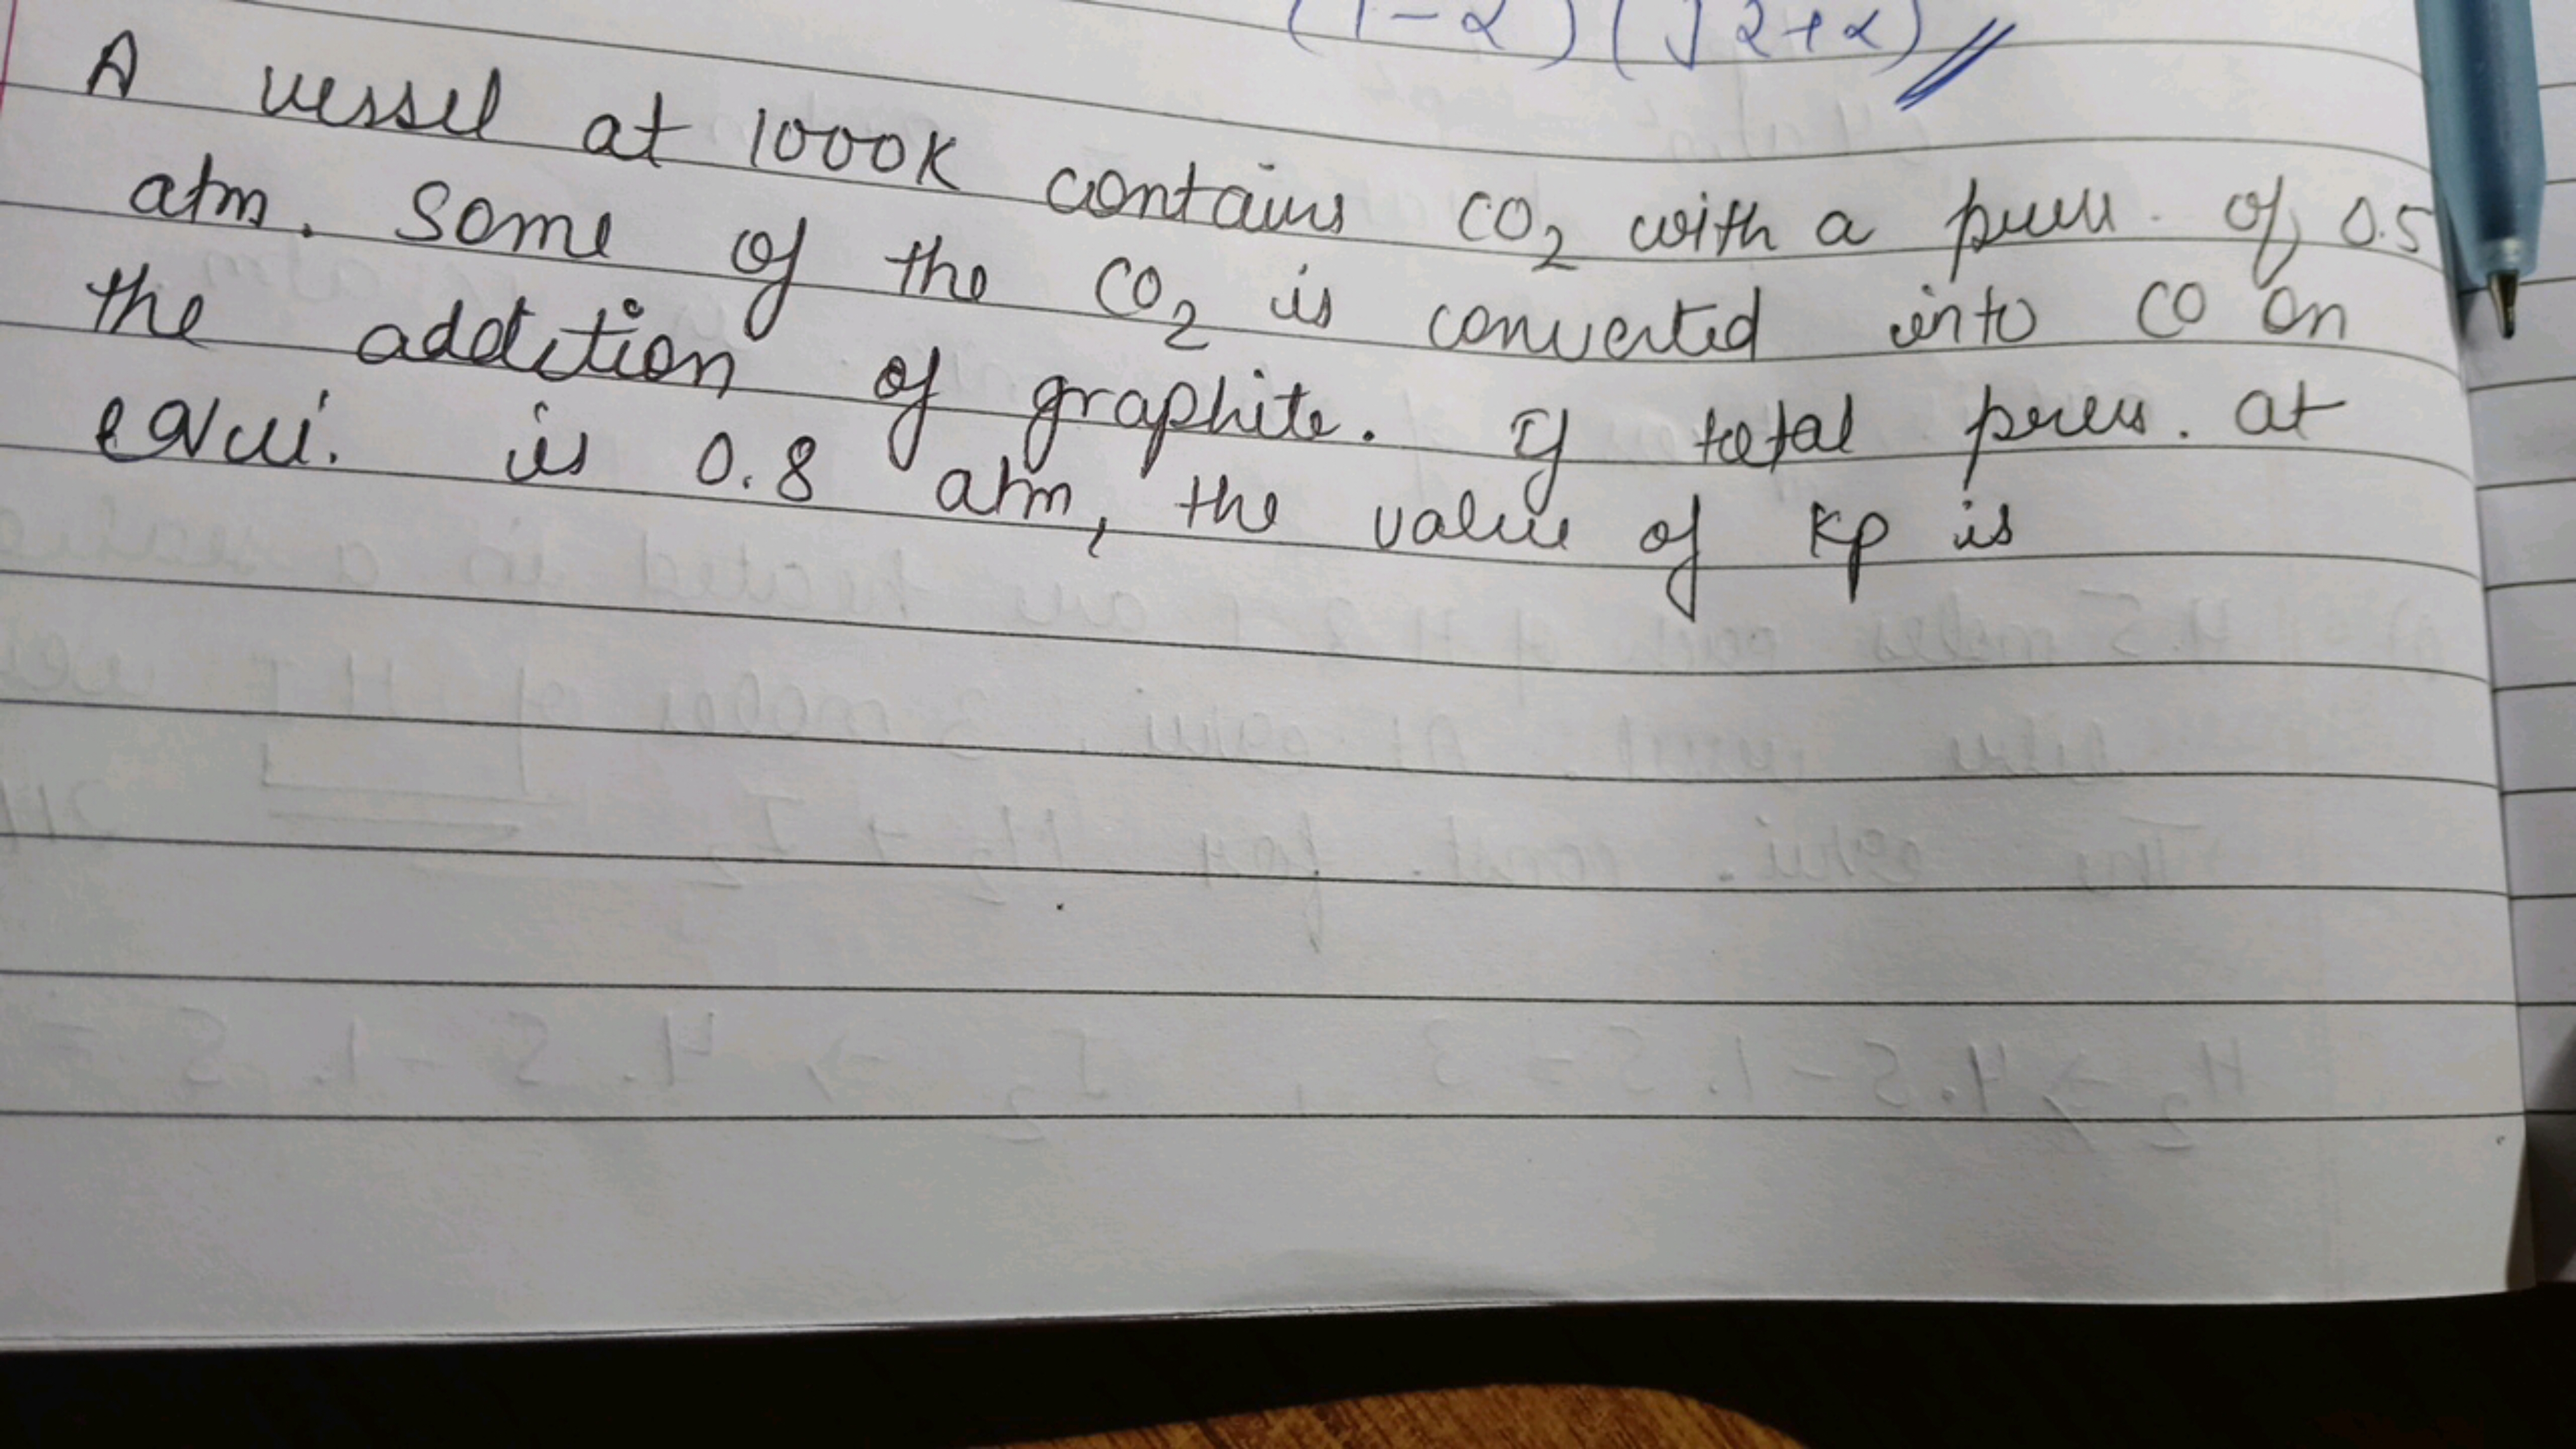 (1-α)(√2+α)
A vessel at 1000K contains CO2 with a press. of 0.5
atm. Some of the CO2 is converted into CO on
the addition of graphite. If total press. at
equi. is 0.8 atm, the value of Kp is